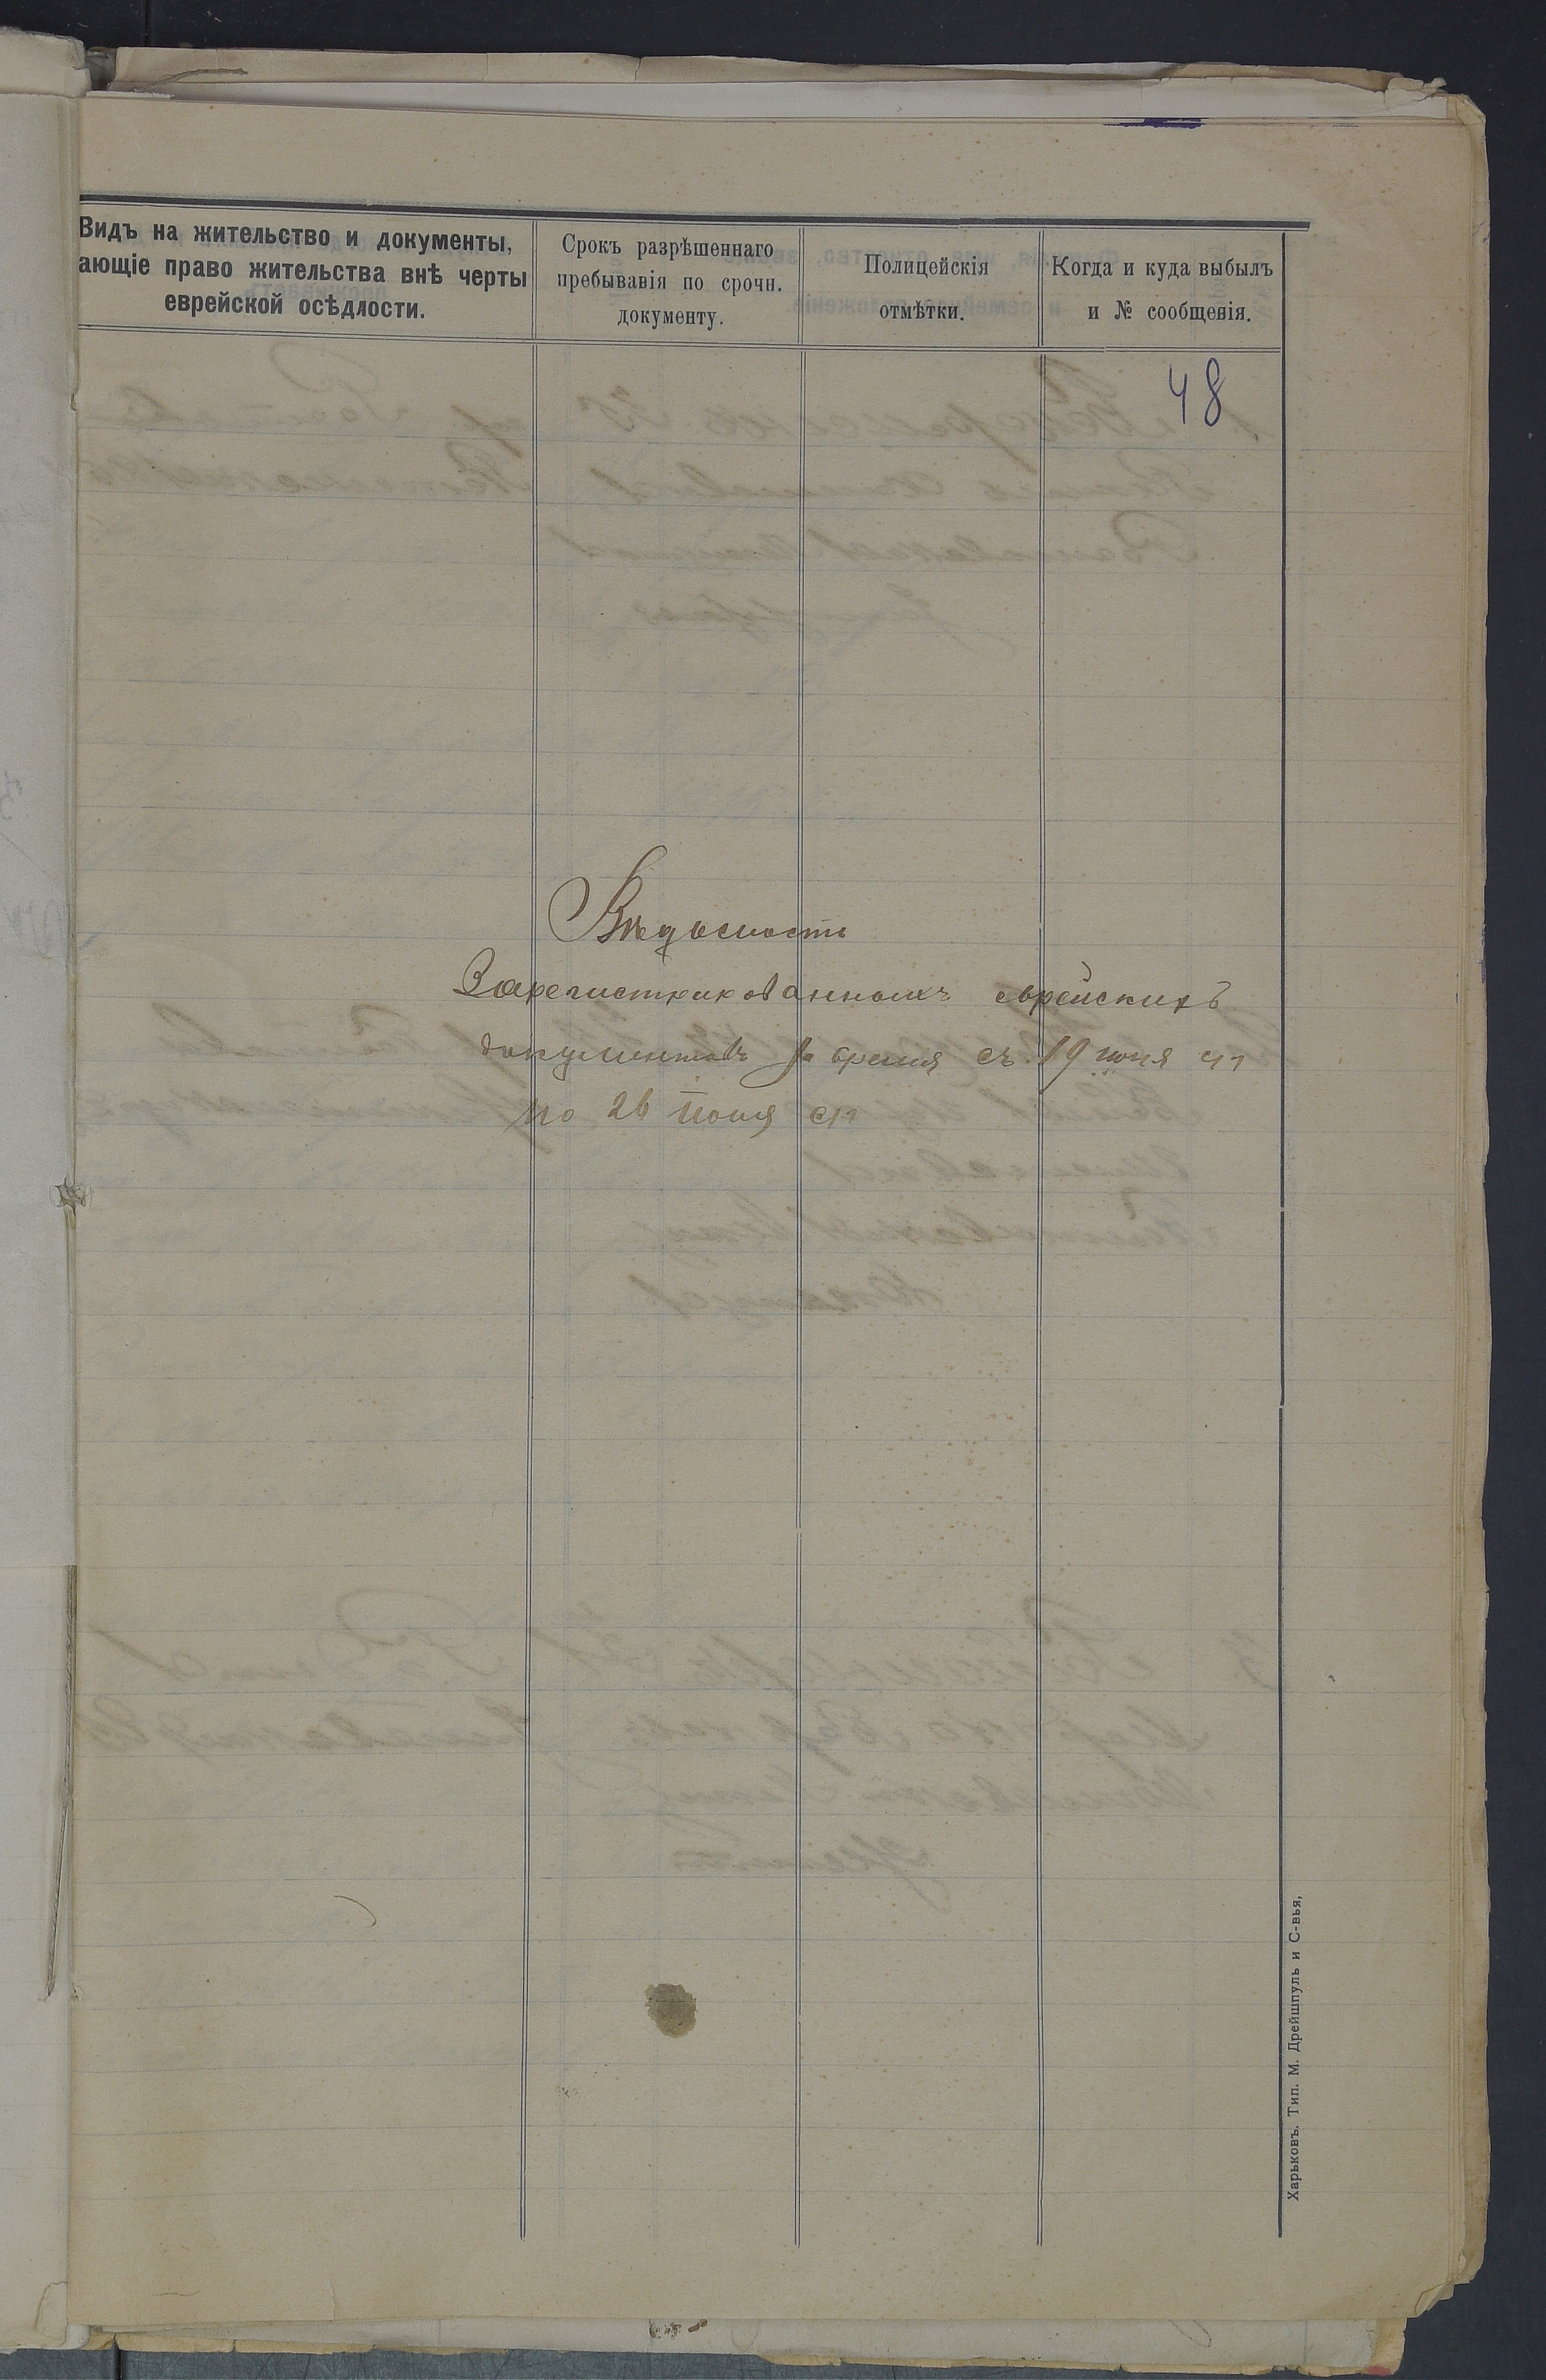 Видъ на жительство и документы,
ающіе право жительства внѣ черты
еврейской осѣдлости.
Срокъ разрѣшеннаго
пребыванія по срочн.
документу.
Полицейскія
отмѣтки.
Когда и куда выбылъ
и № сообщенія.
48
Вѣдомость
Зарегистрированныхъ еврейскихъ
документовъ за время съ 19 июня
по 26 июня
Харьковъ. Тип. М. Дрейшпуль и С-вья,